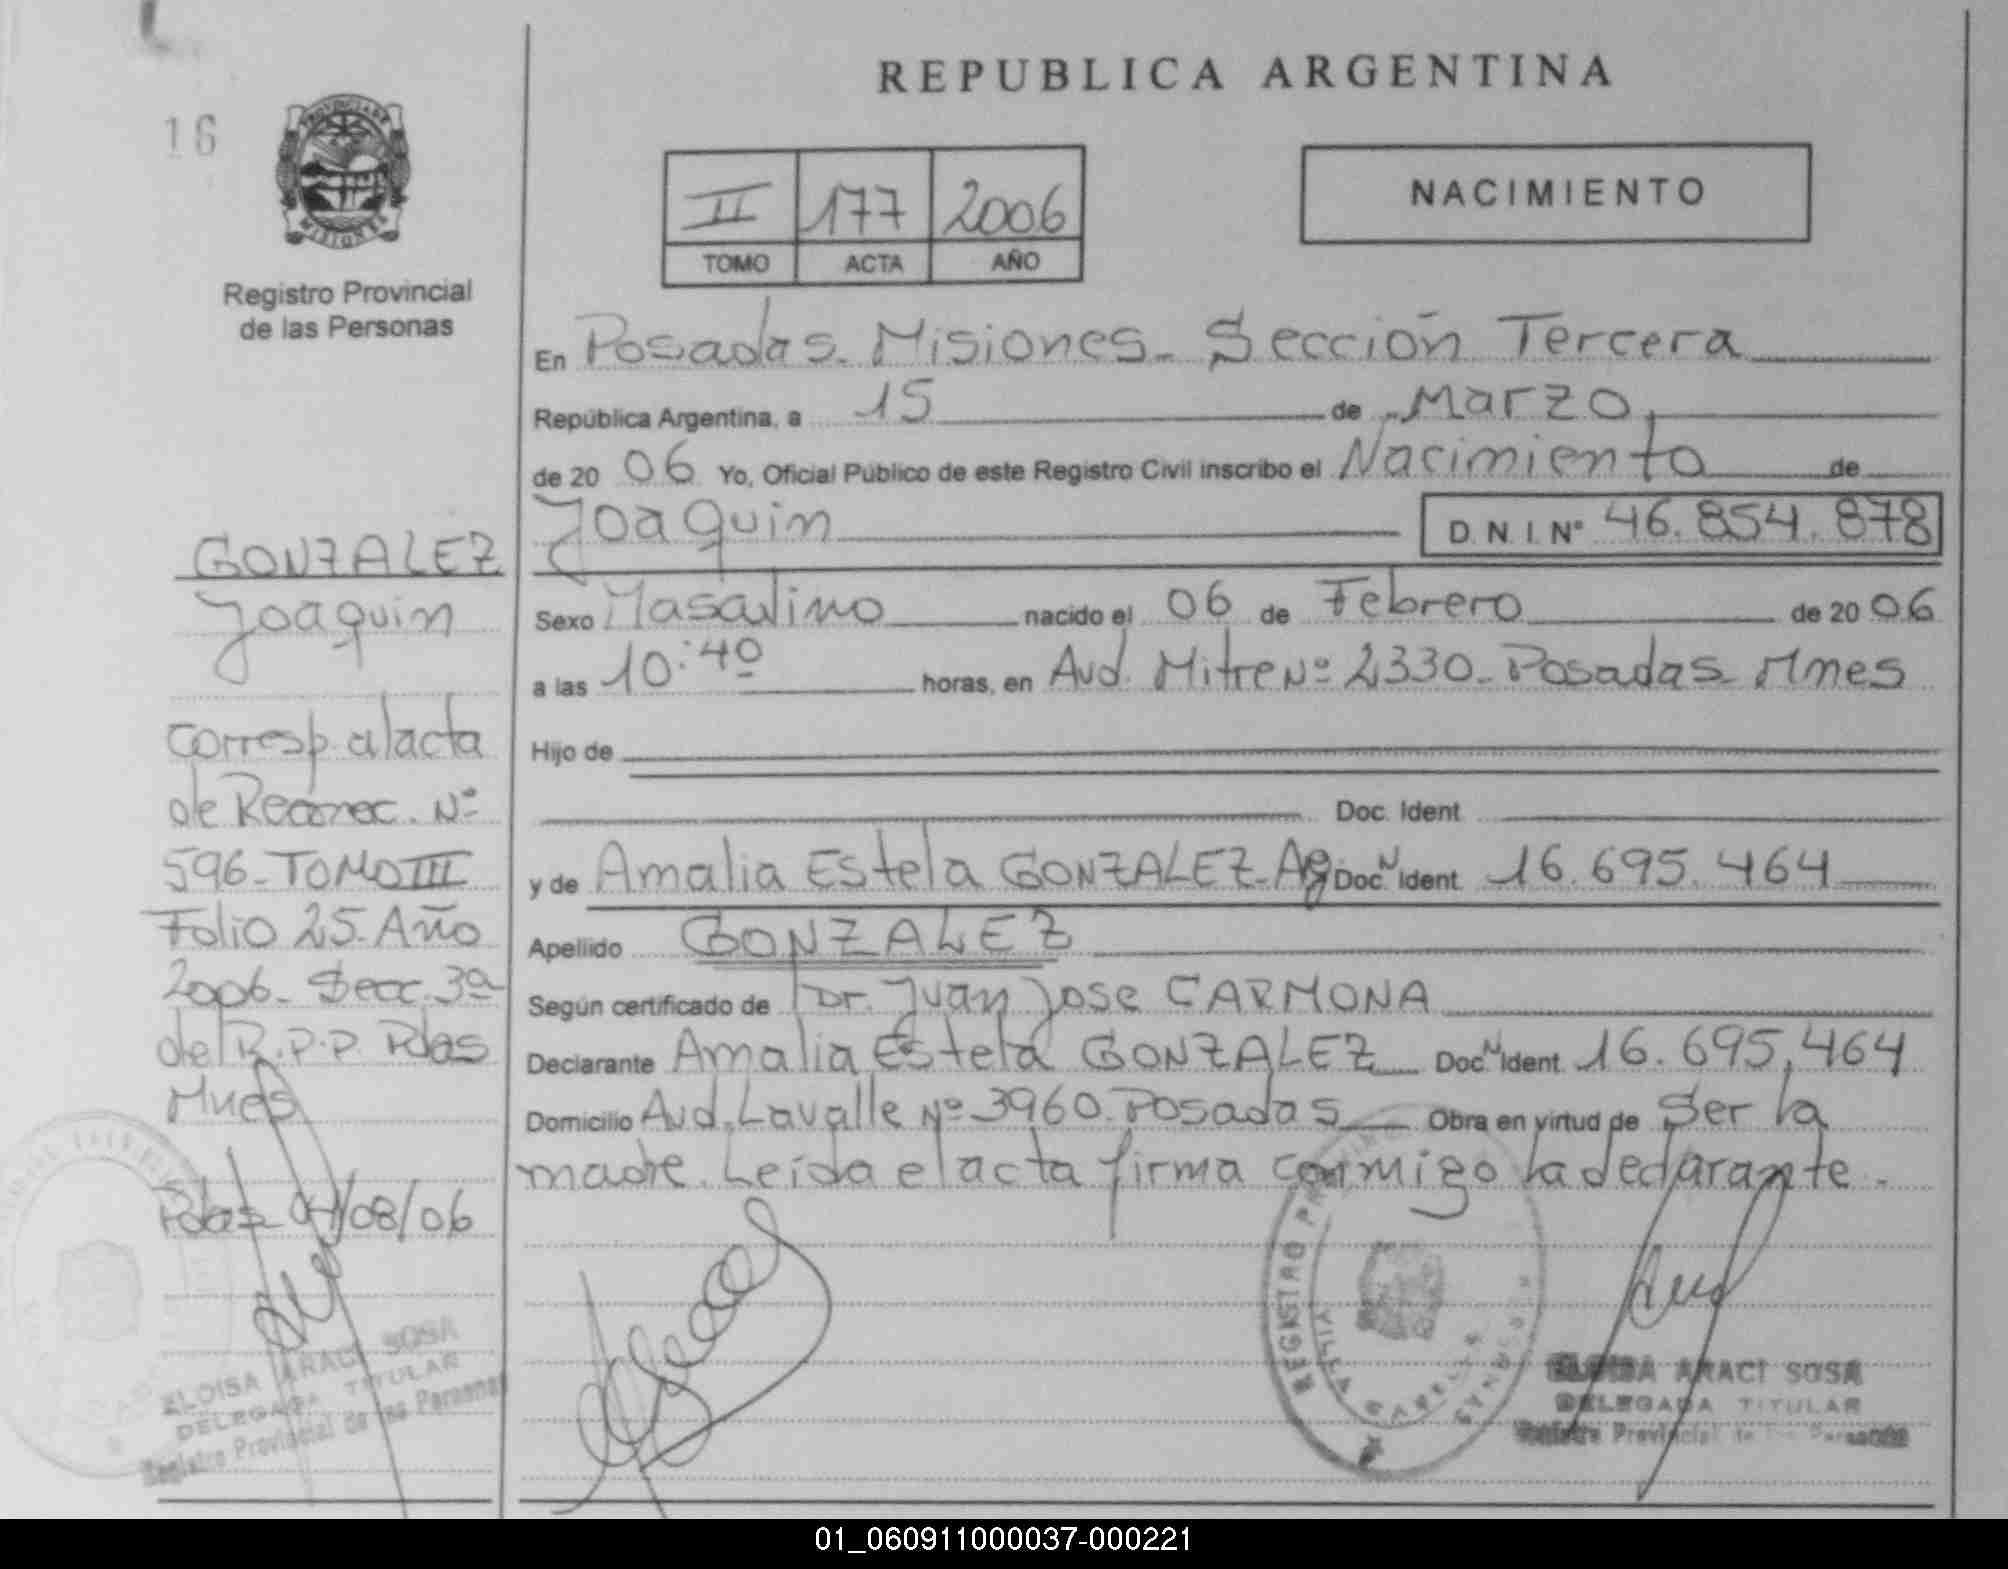 REPUBLICA ARGENTINA
16
PROVINCIA DE
MISIONES
Registro Provincial
de las Personas
II 177 2006
TOMO ACTA AÑO
NACIMIENTO
En Posadas - Misiones - Sección Tercera
República Argentina, a 15 de Marzo,
de 20 06 Yo, Oficial Público de este Registro Civil inscribo el Nacimiento de
Joaquin D.N.I. N° 46.854.878
Sexo Masculino nacido el 06 de Febrero de 20 06
a las 10:40 horas, en Avd. Mitre Nº 2330 - Posadas - Mnes
Hijo de
Doc. Ident
y de Amalia Estela GONZALEZ - Arg Doc. N Ident 16.695.464
Apellido GONZALEZ
Según certificado de Dr. Juan Jose CARMONA
Declarante Amalia Estela GONZALEZ Doc. N Ident 16.695.464
Domicilio Avd. Lavalle Nº 3960. Posadas Obra en virtud de Ser la
madre. Leída el acta firma conmigo la declarante.
GONZALEZ
Joaquin
corresp. al acta
de Reconoc. Nº
596 - TOMO III
Folio 25 - Año
2006 - Secc. 3ª
del R.P.P. Pdas
Mnes
Pdas 04/08/06
ELOISA ARACI SOSA
DELEGADA TITULAR
Registro Provincial de las Personas
REGISTRO
VILLA CABELLO
ELOISA ARACI SOSA
DELEGADA TITULAR
Registro Provincial de las Personas
01_060911000037-000221